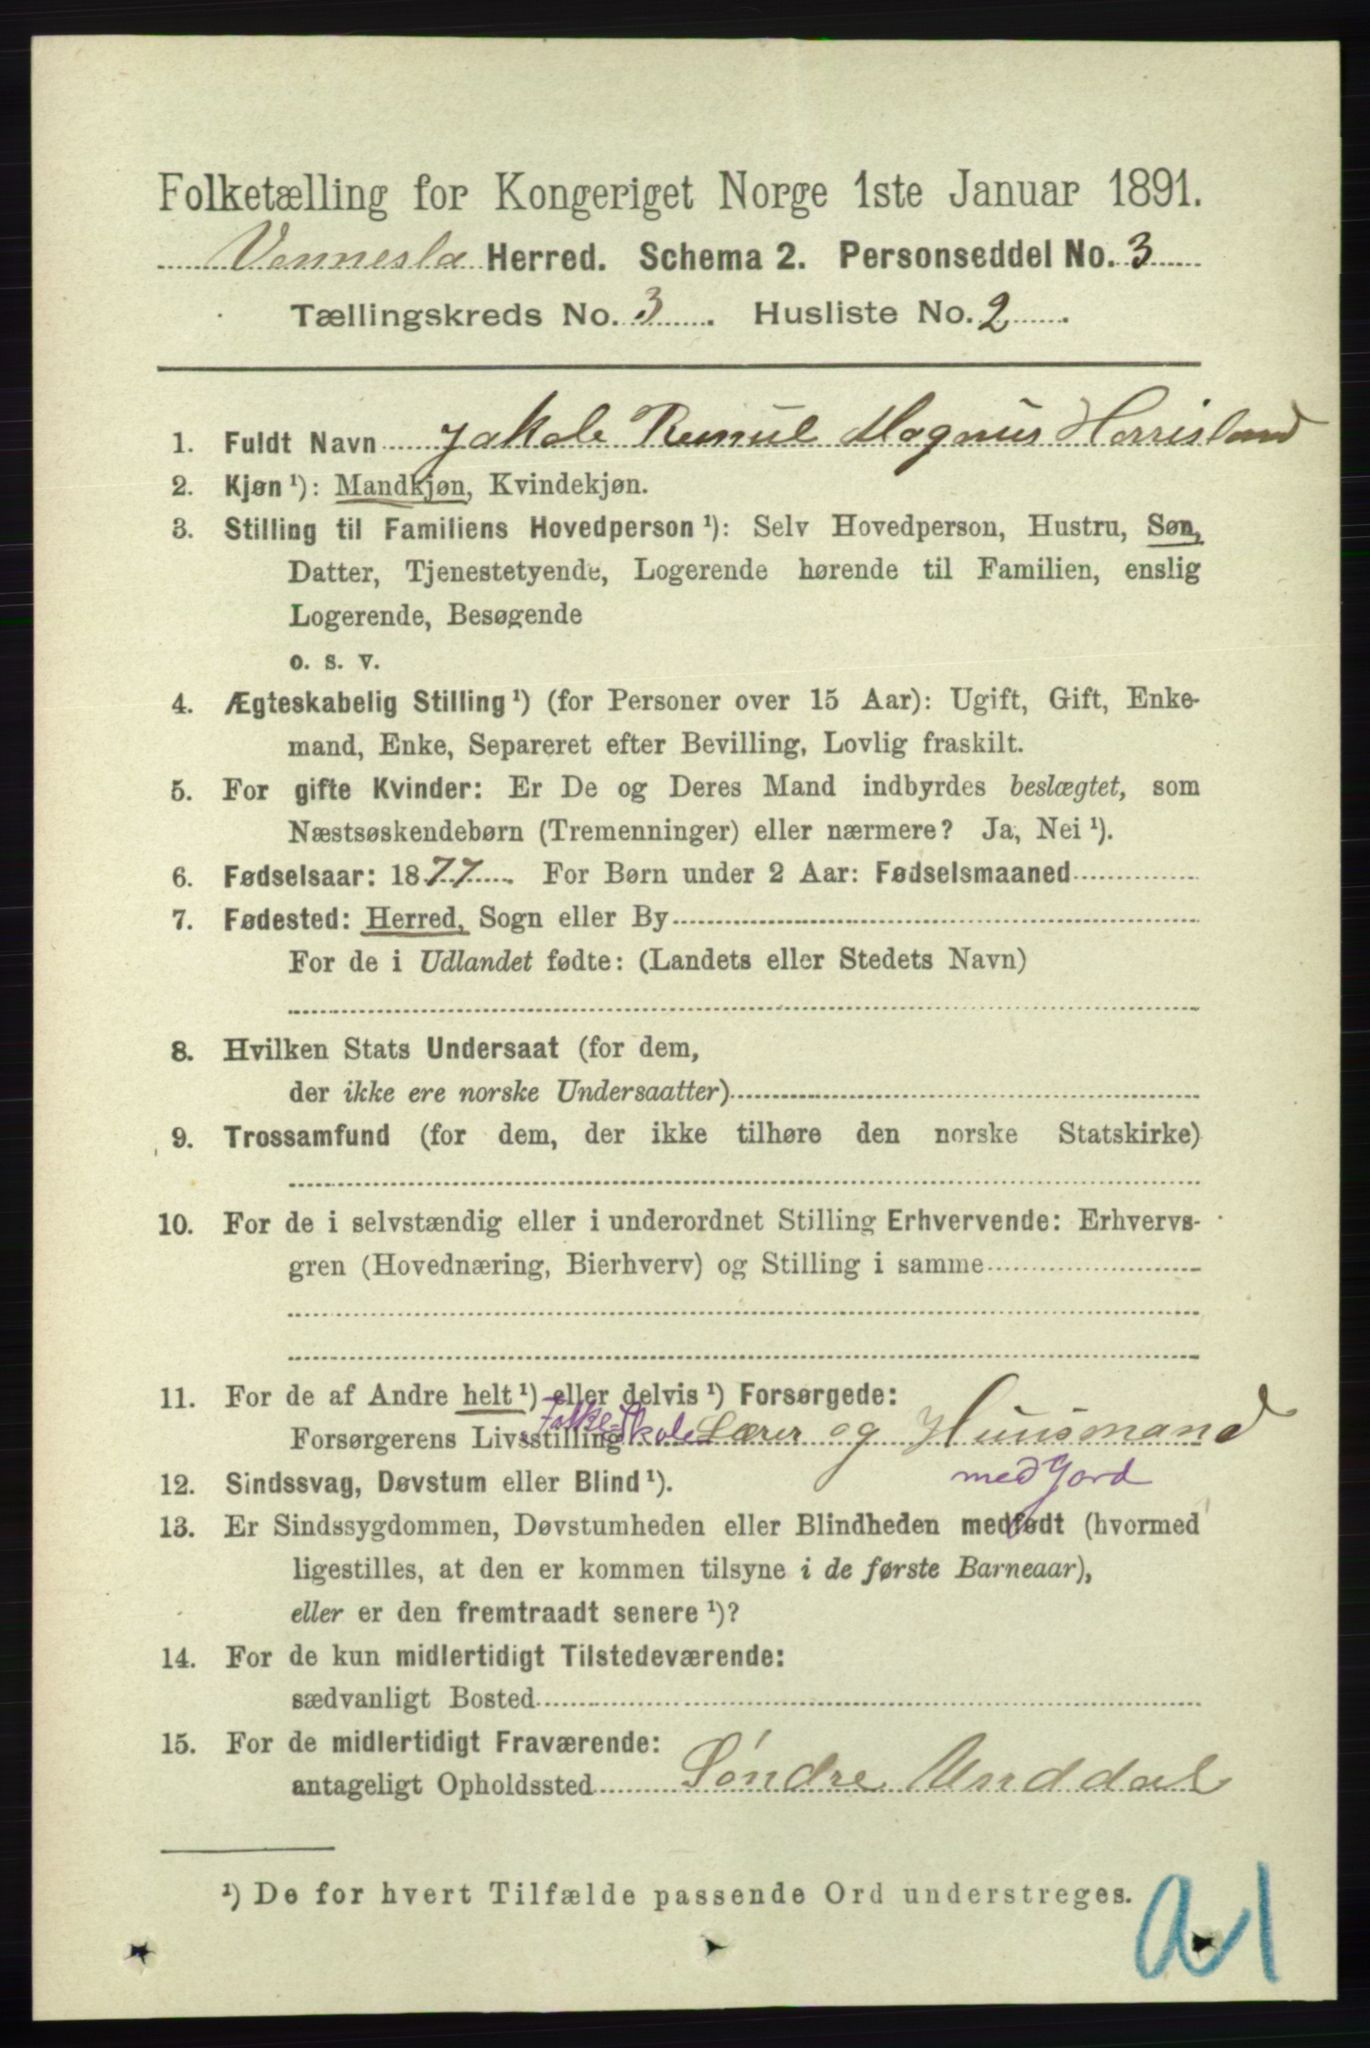 Folketælling for Kongeriget Norge 1ste Januar 1891.
Vennesla Herred. Schema 2. Personseddel No. 3
Tællingskreds No. 3. Husliste No. 2.
1. Fuldt Navn Jakob Magnus
2. Kjøn ¹): Mandkjøn, Kvindekjøn.
3. Stilling til Familiens Hovedperson ¹): Selv Hovedperson, Hustru, Søn,
Datter, Tjenestetyende, Logerende hørende til Familien, enslig
Logerende, Besøgende
o. s. v.
4. Ægteskabelig Stilling ¹) (for Personer over 15 Aar): Ugift, Gift, Enke-
mand, Enke, Separeret efter Bevilling, Lovlig fraskilt.
5. For gifte Kvinder: Er De og Deres Mand indbyrdes beslægtet, som
Næstsøskendebørn (Tremenninger) eller nærmere? Ja, Nei ¹).
6. Fødselsaar: 1877. For Børn under 2 Aar: Fødselsmaaned
7. Fødested: Herred, Sogn eller By
For de i Udlandet fødte: (Landets eller Stedets Navn)
8. Hvilken Stats Undersaat (for dem,
der ikke ere norske Undersaatter)
9. Trossamfund (for dem, der ikke tilhøre den norske Statskirke)
10. For de i selvstændig eller i underordnet Stilling Erhvervende: Erhvervs-
gren (Hovednæring, Bierhverv) og Stilling i samme
11. For de af Andre helt ¹) eller delvis ¹) Forsørgede:
Forsørgerens Livsstilling Folkeskole Lærer og Huusmand
med Jord
12. Sindssvag, Døvstum eller Blind ¹).
13. Er Sindssygdommen, Døvstumheden eller Blindheden medfødt (hvormed
ligestilles, at den er kommen tilsyne i de første Barneaar),
eller er den fremtraadt senere ¹)?
14. For de kun midlertidigt Tilstedeværende:
sædvanligt Bosted
15. For de midlertidigt Fraværende:
antageligt Opholdssted Søndre Unddal
¹) De for hvert Tilfælde passende Ord understreges.
a1